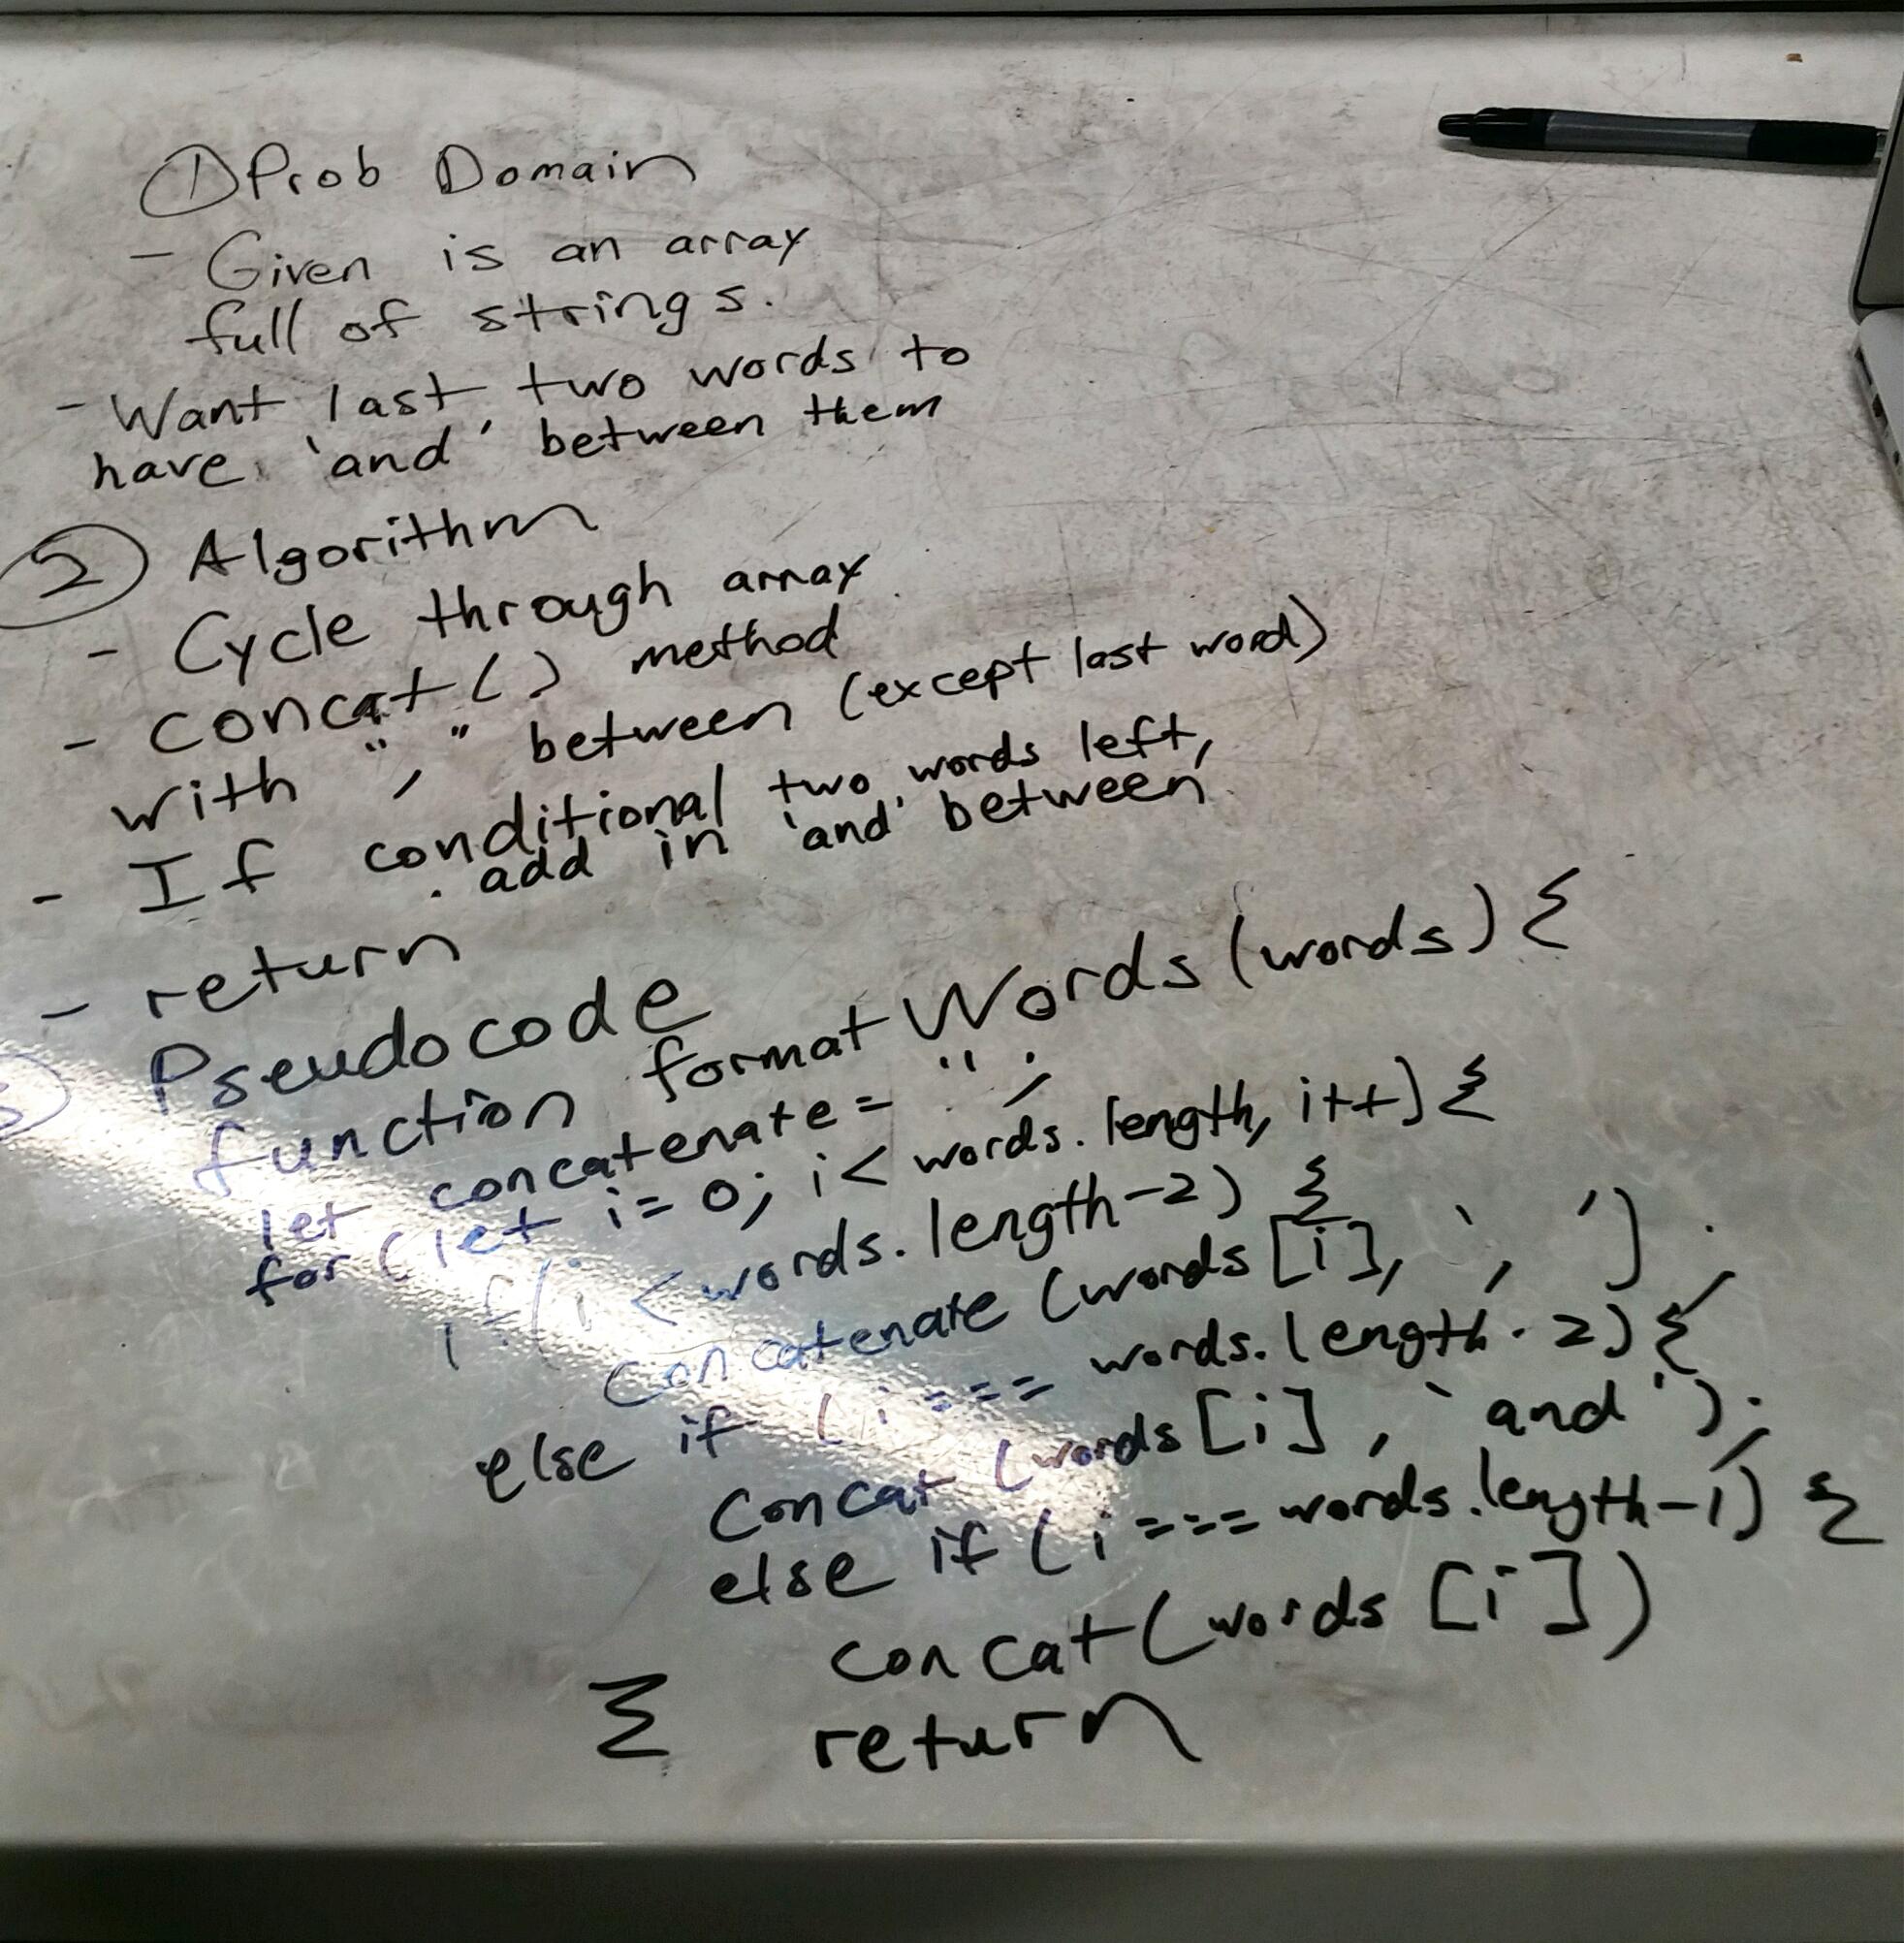 ① Prob Domain
- Given is an array
full of strings.
- Want last two words to
have 'and' between them
② Algorithm
- Cycle through array
- concat() method
with ", " between (except last word)
- If conditional two words left,
add in 'and' between
- return
③ Pseudocode
function formatWords(words) {
let concatenate = '';
for (let i = 0; i < words.length, i++) {
if (i < words.length-2) {
concatenate (words[i], ', ')
else if (i === words.length-2) {
concat (words[i], 'and');
else if (i === words.length-1) {
concat (words [i])
} return